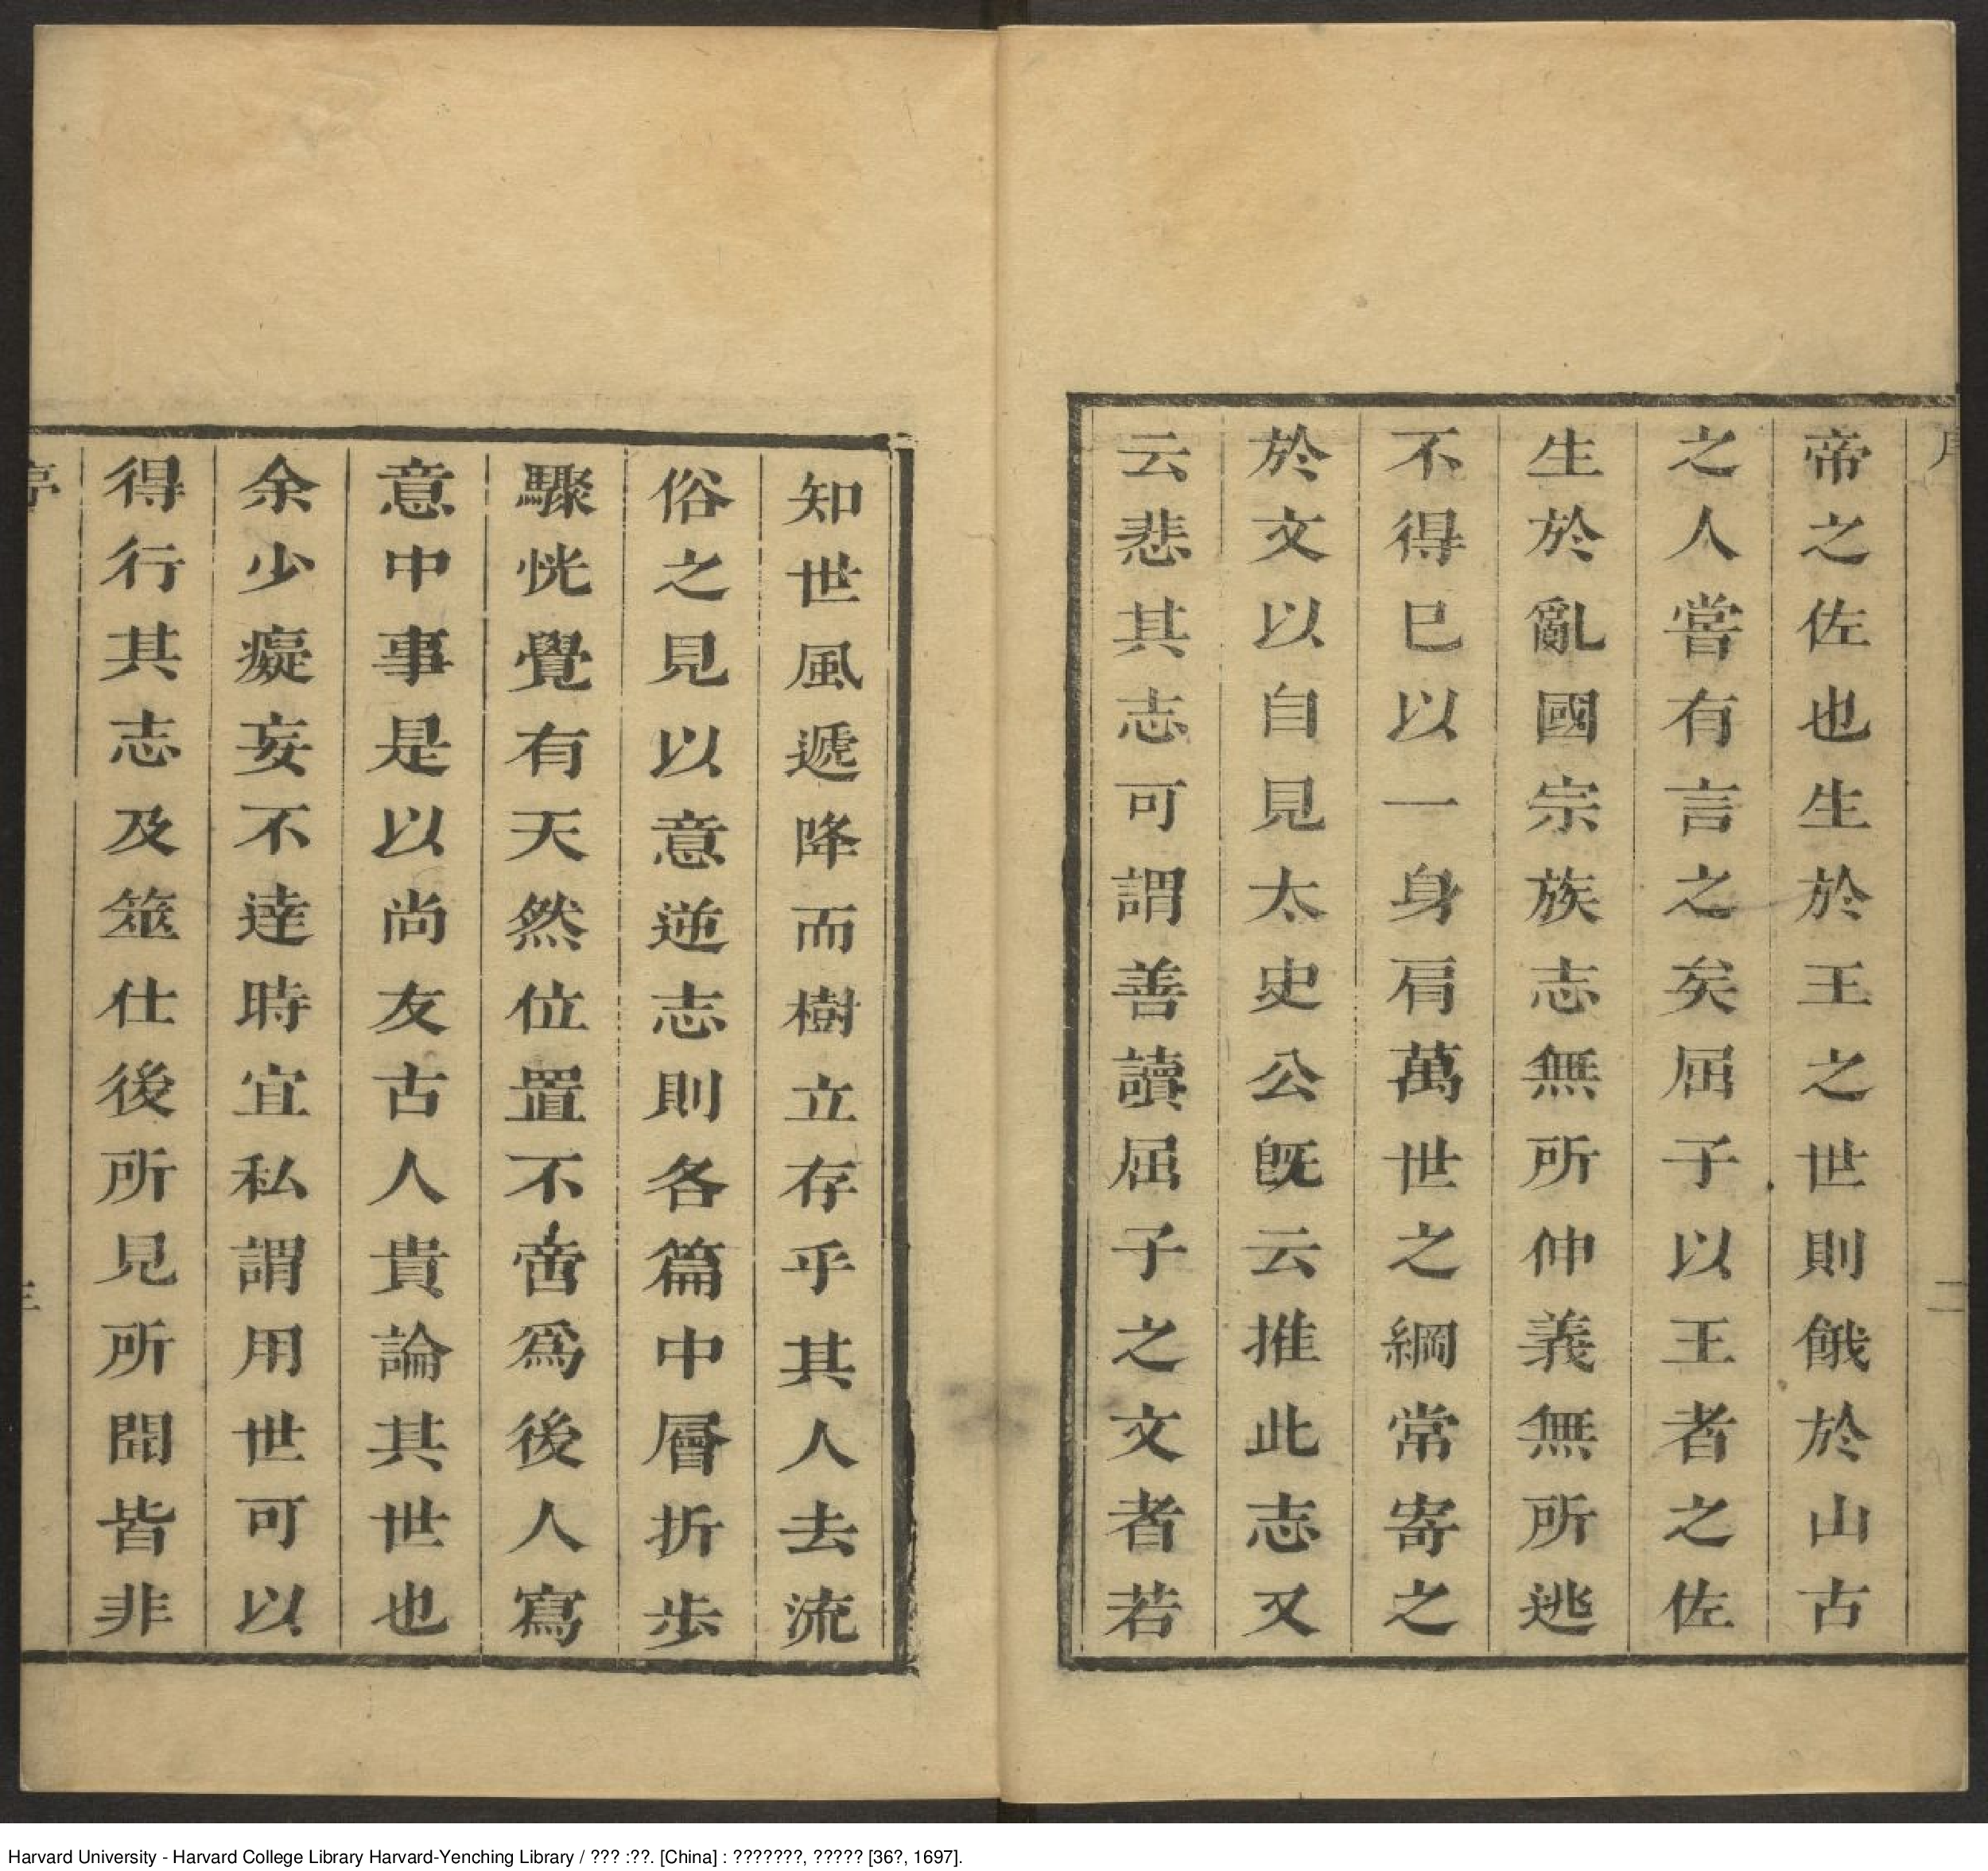 帝之佐也生於王之世則餓於山古
之人嘗有言之矣屈子以王者之佐
生於亂國宗族志無所伸義無所逃
不得巳以一身肩萬世之綱常寄之
於文以自見太史公旣云推此志又
云悲其志可謂善讀屈子之文者若
知世風遞降而樹立存乎其人去流
俗之見以意逆志則各篇中層折步
驟恍覺有天然位置不啻爲後人寫
意中事是以尚友古人貴論其世也
余少癡妄不達時宜私謂用世可以
得行其志及筮仕後所見所聞皆非
Harvard University - Harvard College Library Harvard-Yenching Library / ??? :??. [China] : ???????, ????? [36?, 1697].